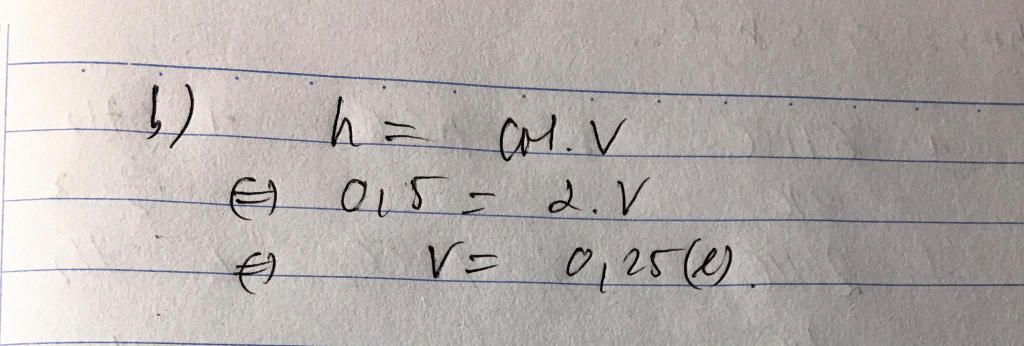 b) n = CM.V
⇔ 0,5 = 2.V
⇔ V = 0,25(l).